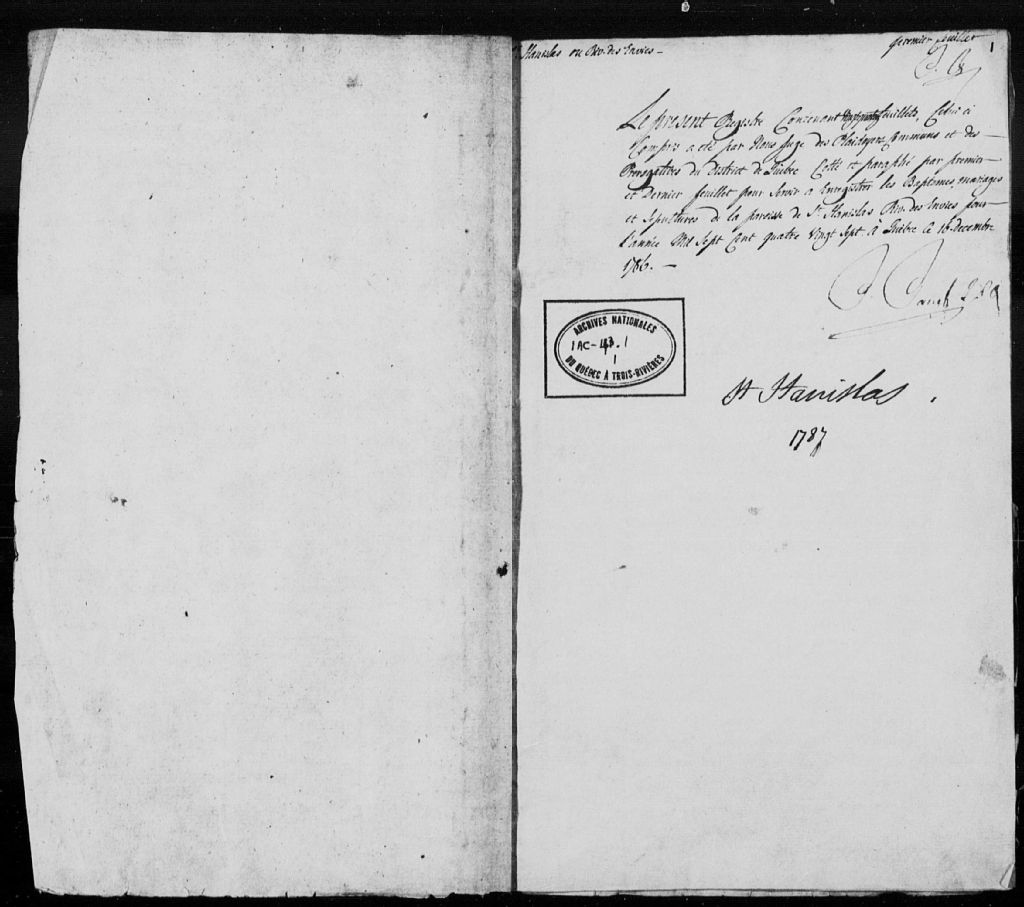 Stanislas ou Riv. des Envies —
premier feuillet
1
Le present Registre Contenant feuillets, Celui ci
Compris a eté par Nous Juge des Plaidoyers Communs et des —
Prerogatives du District de Quebec Cotté et paraphé par premier —
et Dernier feuillet pour Servir a Enregistrer les Baptemes, mariages
et Sepultures de la paroisse de St. Stanislas Riv. des Envies pour —
l'année Mil Sept Cent quatre Vingt Sept. a Québec le 16 decembre
1786. —
ARCHIVES NATIONALES
1AC-43.1
1
DU QUÉBEC À TROIS-RIVIÈRES
St Stanislas .
1787